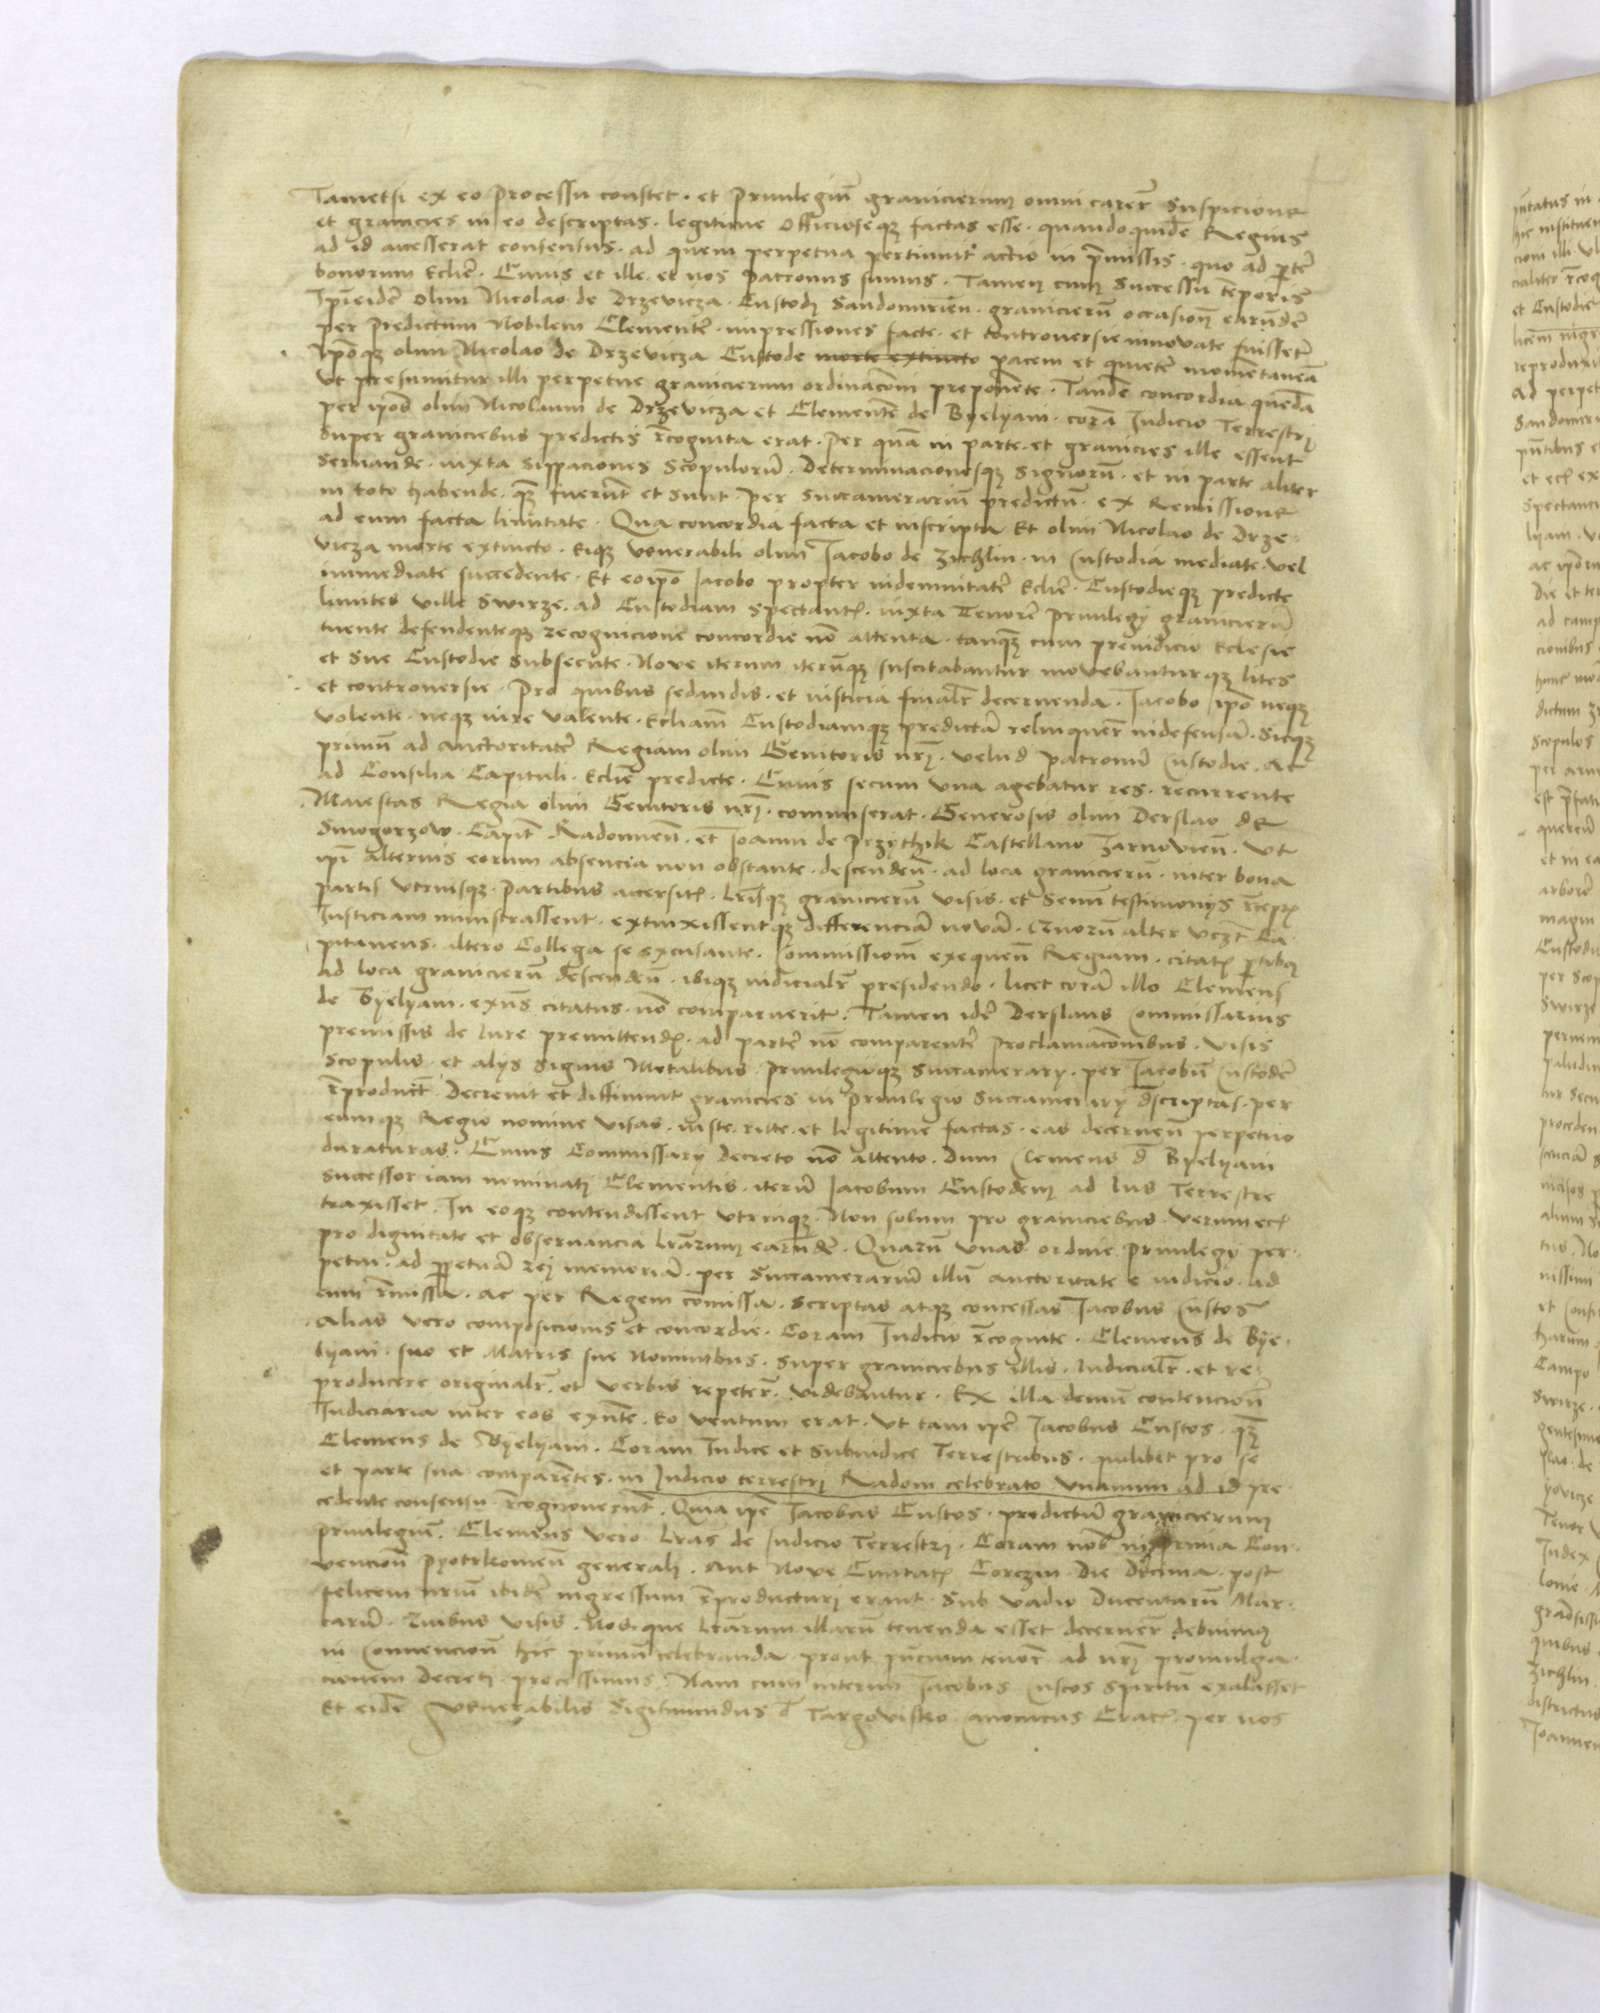 Tametsi ex eo Processu constet · et Priuilegiū granicierum omni carer̄ Suspicione
et granicies in eo descriptas · legitime Officioseqz factas esse · quandoquidē Regius
ad id accesserat consensus · ad quem perpetua pertinuit actio in p̄missis · quo ad p̄tē
bonorum Ecliē · Cuius et ille et nos Patronus sumus · Tamen cum Successu tēporis
Ip̄i eidē Olim Nicolao de Drzevicza · Custodi Sandomirien̄ · granicierū occasion̄ earūdē
per Predictum Nobilem Clementē · impressiones facte · et controversie innovate fuissēt
Ip̄oqz olim Nicolao de Drzevicza Custode morte extincto pacem et quietē momentaneā
Ut presumitur illi perpetue granicierum ordinac̄oni preponēte · Tandē concordia quedā
per ip̄os olim Nicolaum de Drzevicza et Clementē de Byelyam · corā Iudicio Terrestri
Super graniciebus predictis r̄cognita erat · Per quā in parte et granicies ille essent
Seruande · iuxta Sippaciones Scopulorū · Determinacionesqz Signorū · et in parte aliter
in toto habende · qz fuerūt et Sunt · per Succamerariū predictū · ex Remissione
ad eum facta limitate · Qua concordia facta et inscripta Et olim Nicolao de Drze·
vicza morte extincto · Eiqz venerabili olim Jacobo de Zichlin · in Custodia mediate vel
immediate succedente · Et eoip̄o Jacobo propter indemnitatē Ecliē · Custodieqz predicte
limites ville Swirze · ad Custodiam Spectant̄ · iuxta Tenorē Priuilegy granicierū
tuente defendenteqz recognicione concordie nō attenta · tanqz cum preiudicio Eclesie
et Sue Custodie Subsecute · Nove iterum iterūqz suscitabantur movebanturqz lites
et controversie · Pro quibus sedandis · et iusticia final̄r decernenda · Jacobo ip̄o neqz
volente · neqz iure valente · Ecliam̄ Custodiamqz predictā relinquer̄ indefensā · Sicqz
primū ad auctoritatē Regiam olim Genitoris nr̄i · velud Patronū Custodie · Ac
ad Consilia Capituli · Ecliē predicte · Cuius secum una agebatur res · recurrente
Maiestas Regia olim Genitoris nr̄i · commiserat · Generosis olim Derslao de
Smogorzow · Capit̄ · Radomien̄ · et Ioanni de Przythik Castellano Zarnovien̄ · Ut
ip̄i alterius eorum absencia non obstante · descendēn · ad loca granicierū · inter bona
partis utriusqz · Partibus accersit̄ · Lr̄isqz granicierū visis · et Senum testimonys r̄cept̄
Iusticiam ministrassent · extinxissentqz differenciā novā · Quorū alter vcz̄t Ca·
pitaneus · altero Collega se excusante · Commissionē exequen̄ Regiam · citatis p̄tibus
ad loca granicierū descendēn · ibiqz iudicial̄r presidendo · licet corā illo Clemens
de Byelyam · exn̄s citatus · nō comparuerit · Tamen idē Derslaus Commissarius
premissis de Iure premittend̄ · ad partē nō comparentē Proclamac̄onibus · visis
Scopulis · et alys Signis Metalibus · Priuilegioqz Succamerary · per Iacobū Custodē
r̄product̄ · Decreuit et diffiniuit granicies in Priuilegio Succamerary d̄scriptas · per
eumqz Regio nomine visas · iuste · ritte · et legitime factas · eas decernen̄ perpetuo
duraturas · Cuius Commissary Decreto nō attento · Dum Clemens d̄ Byelyam
Successor iam nominati Clementis · iterū Jacobum Custodem ad Ius Terrestre
traxisset · In eoqz contendissent utrinqz · Non solum pro graniciebus · verum ec̄
pro dignitate et obseruancia Lr̄arum earūdē · Quarū unas ordine Priuilegy per·
petui · ad p̄petuā rei memoriā · per Succamerariū illū auctoritate e iudicio · ad
eum r̄missa · Ac per Regem cōmissa · scriptas atqz concessas Jacobus Custos
Alias vero composicionis et concordie · Coram Iudicio r̄cognite · Clemens de Bye·
lyam · suo et Matris sue Nominibus · Super graniciebus illis · Iudicial̄r · et re·
producere original̄r et verbis repeter̄ · videbantur · Ex illa demū contencion̄
Iudiciaria inter eos exn̄te · Eo ventum erat · ut tam ip̄e Jacobus Custos · qz
Clemens de Byelyam · Coram Iudice et Subiudice Terrestribus · quilibet pro se
et parte sua comparētes · in Iudicio terrestri Radom celebrato unanimi ad id pre·
cedente consensu · r̄cognouerūt · Quia ip̄e Jacobus Custos · predictū granicierum
Priuilegiū · Clemens vero Lr̄as de Iudicio Terrestri · Coram nob̄ in prima Con·
vencion̄ Pyotrkomien̄ generali · Aut Nove Ciuitat̄ Corczin · Die Decima · post
felicem nr̄um ibidē ingressum r̄producturi erant · Sub vadio Ducentarū Mar·
carū · Quibus visis · Nos que Lr̄arum illarū tenenda esset decerner̄ debuimus
in Convencion̄ hic primū celebranda · prout iuxta tenorē · ad nr̄i promulga·
cionem Decreti processimus · Nam cum interim Jacobus Custos Spiritū exalasset
Et eidē Venerabilis Sigismundus d̄ Targovisko Canonicus Crac̄ · per nos